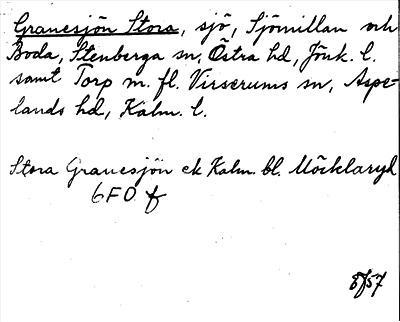 Granesjön Stora, sjö, Sjömillan och
Boda, Stenberga sn, Östra hd, Jönk. l.
samt Torp m. fl. Virserums sn, Aspe-
lands hd, Kalm. l.
Stora Granesjön ek Kalm. bl. Möcklaryd
6F0 f
8/57